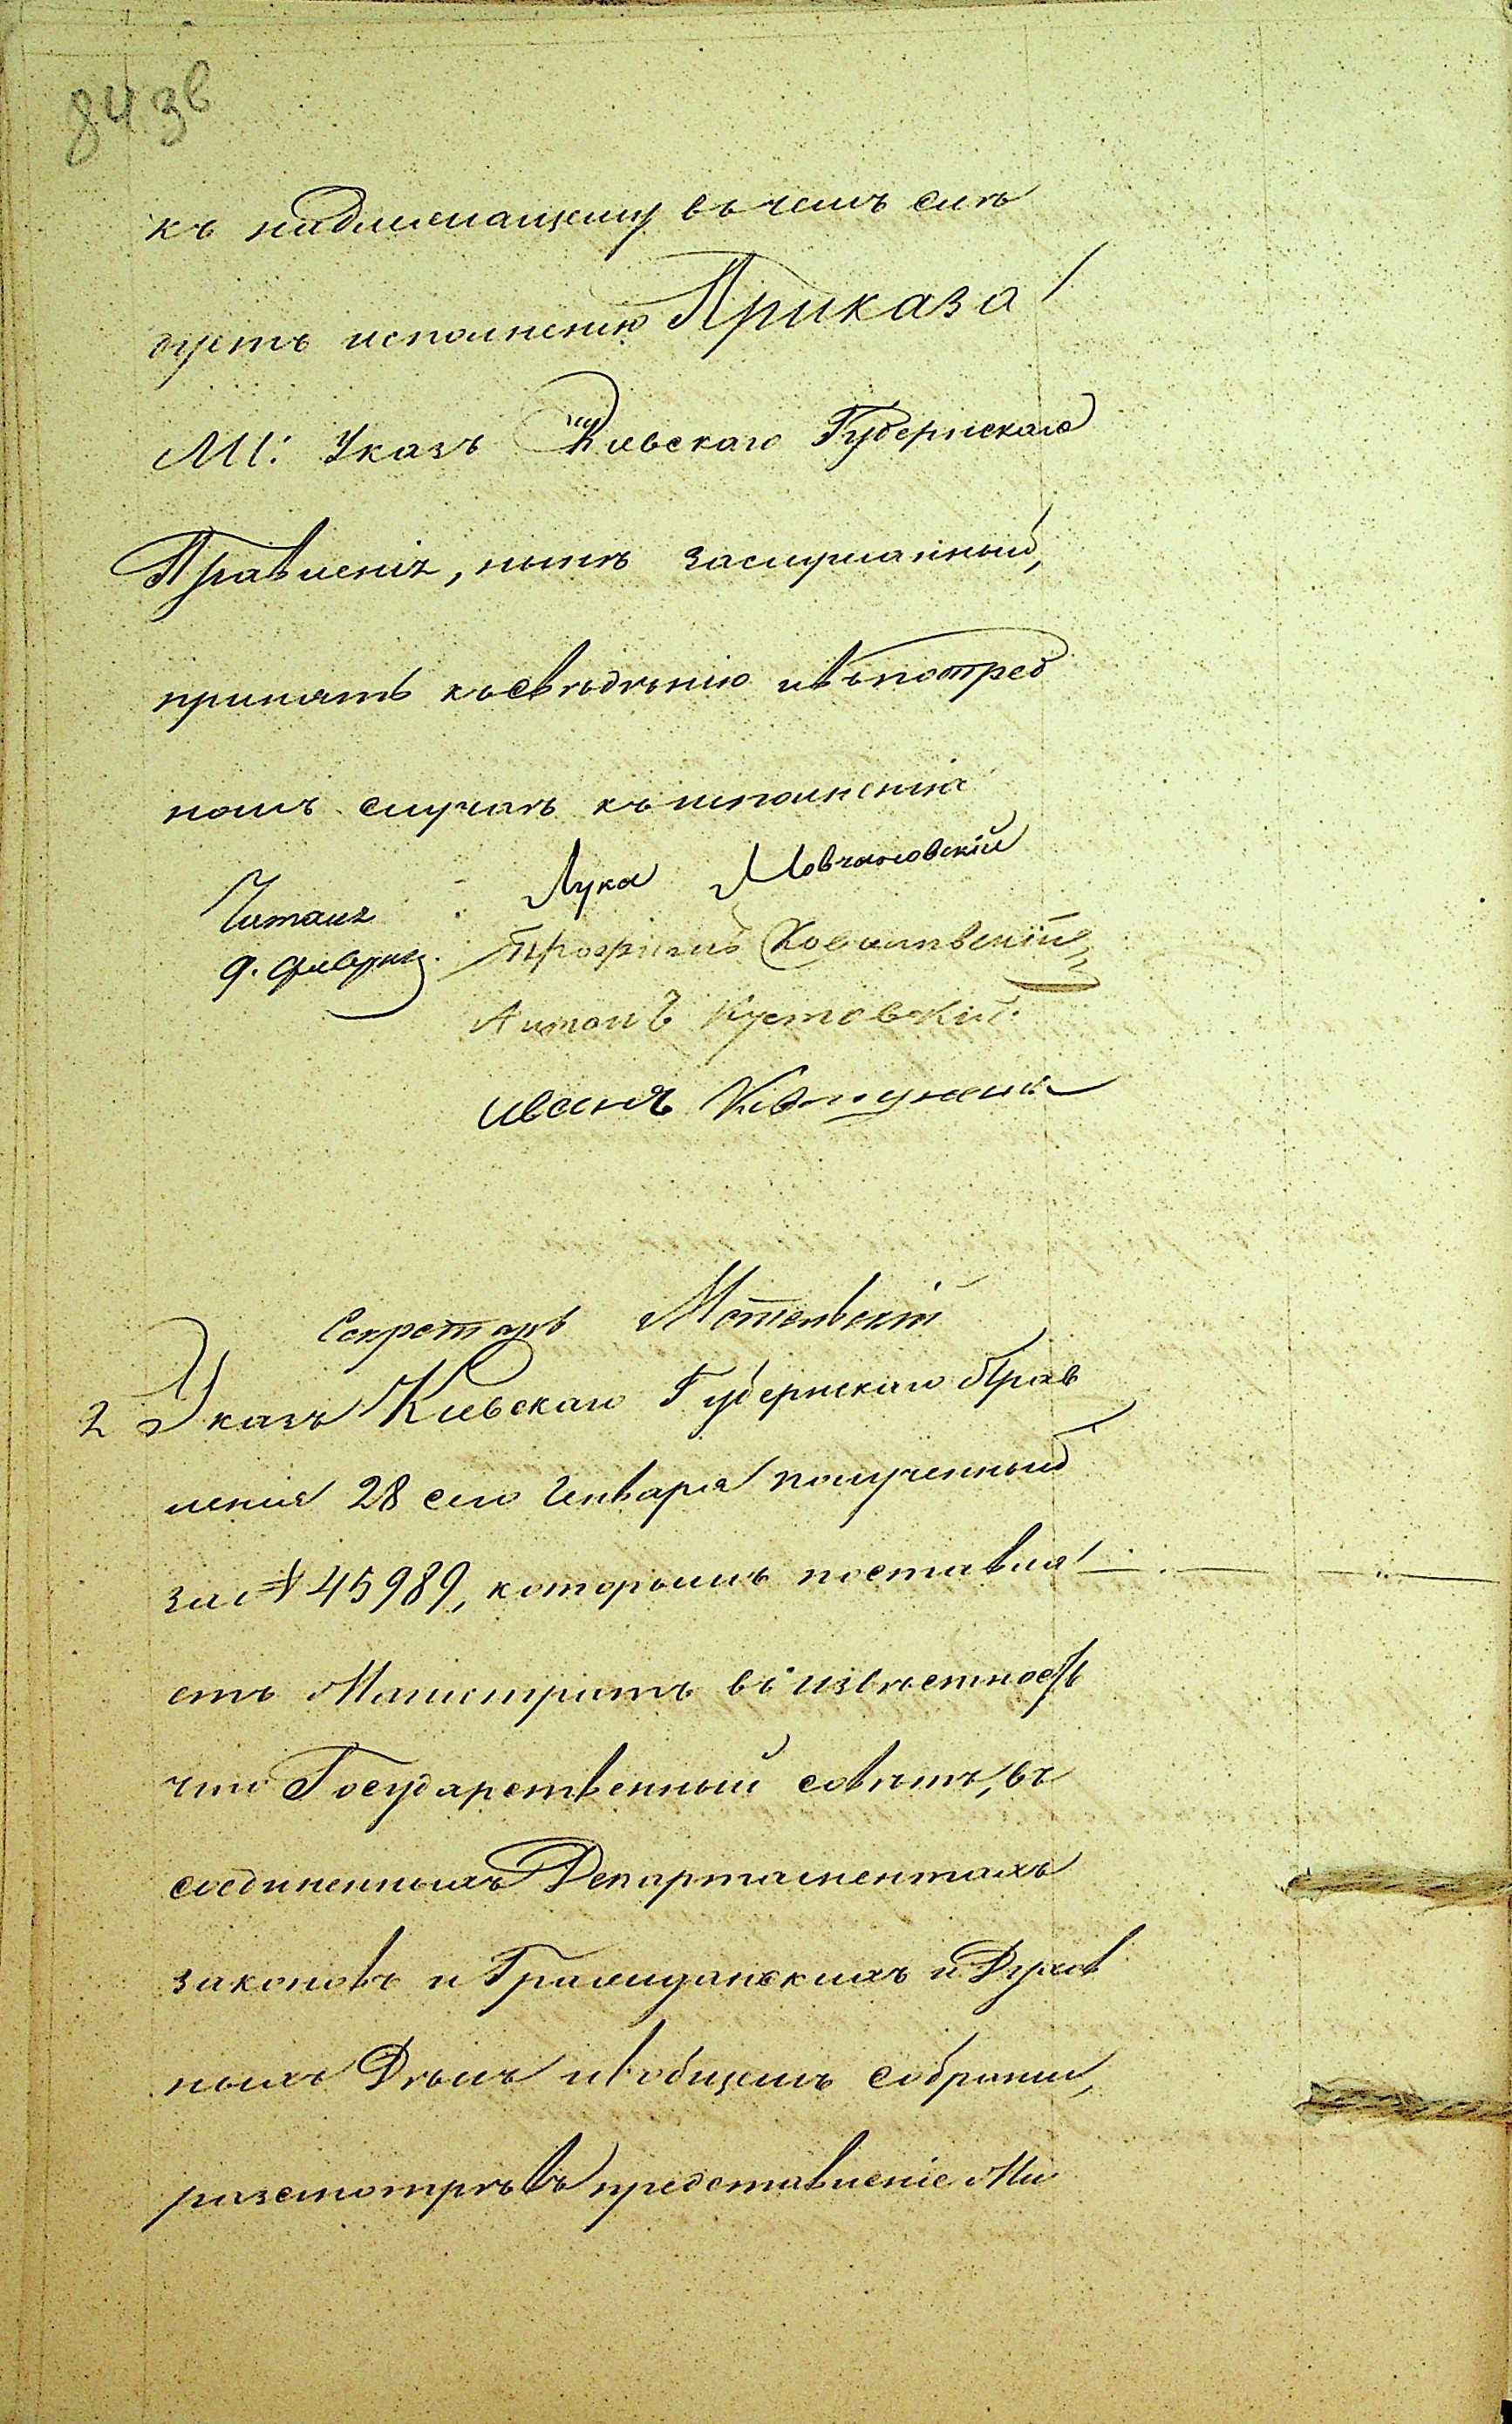 84 зв
къ надлежащему въ чемъ слѣ
дуетъ исполненію Приказа
ли: Указъ Кіевскаго Губернскаго
Правленія, нынѣ заслушанный,
принять къ свѣдѣнію и въ потреб
номъ случаѣ къ исполненію
Лука Мовчановскій
Читалъ
9. февраля
Трофимъ Ковалевскій
Антонъ Кустовскій
Иванъ
Секретарь
2 Указъ Кіевскаго Губернскаго Прав
ленія 28 сего Генваря полученный
за № 45989, которымъ поставля
етъ Магистратъ въ извѣстность
что Государственный совѣтъ, въ
соединенныхъ Департаментахъ
законовъ и Гражданскихъ и Духов
ныхъ Дѣлъ и въ общемъ собраніи,
разсмотрѣвъ представленіе Ми